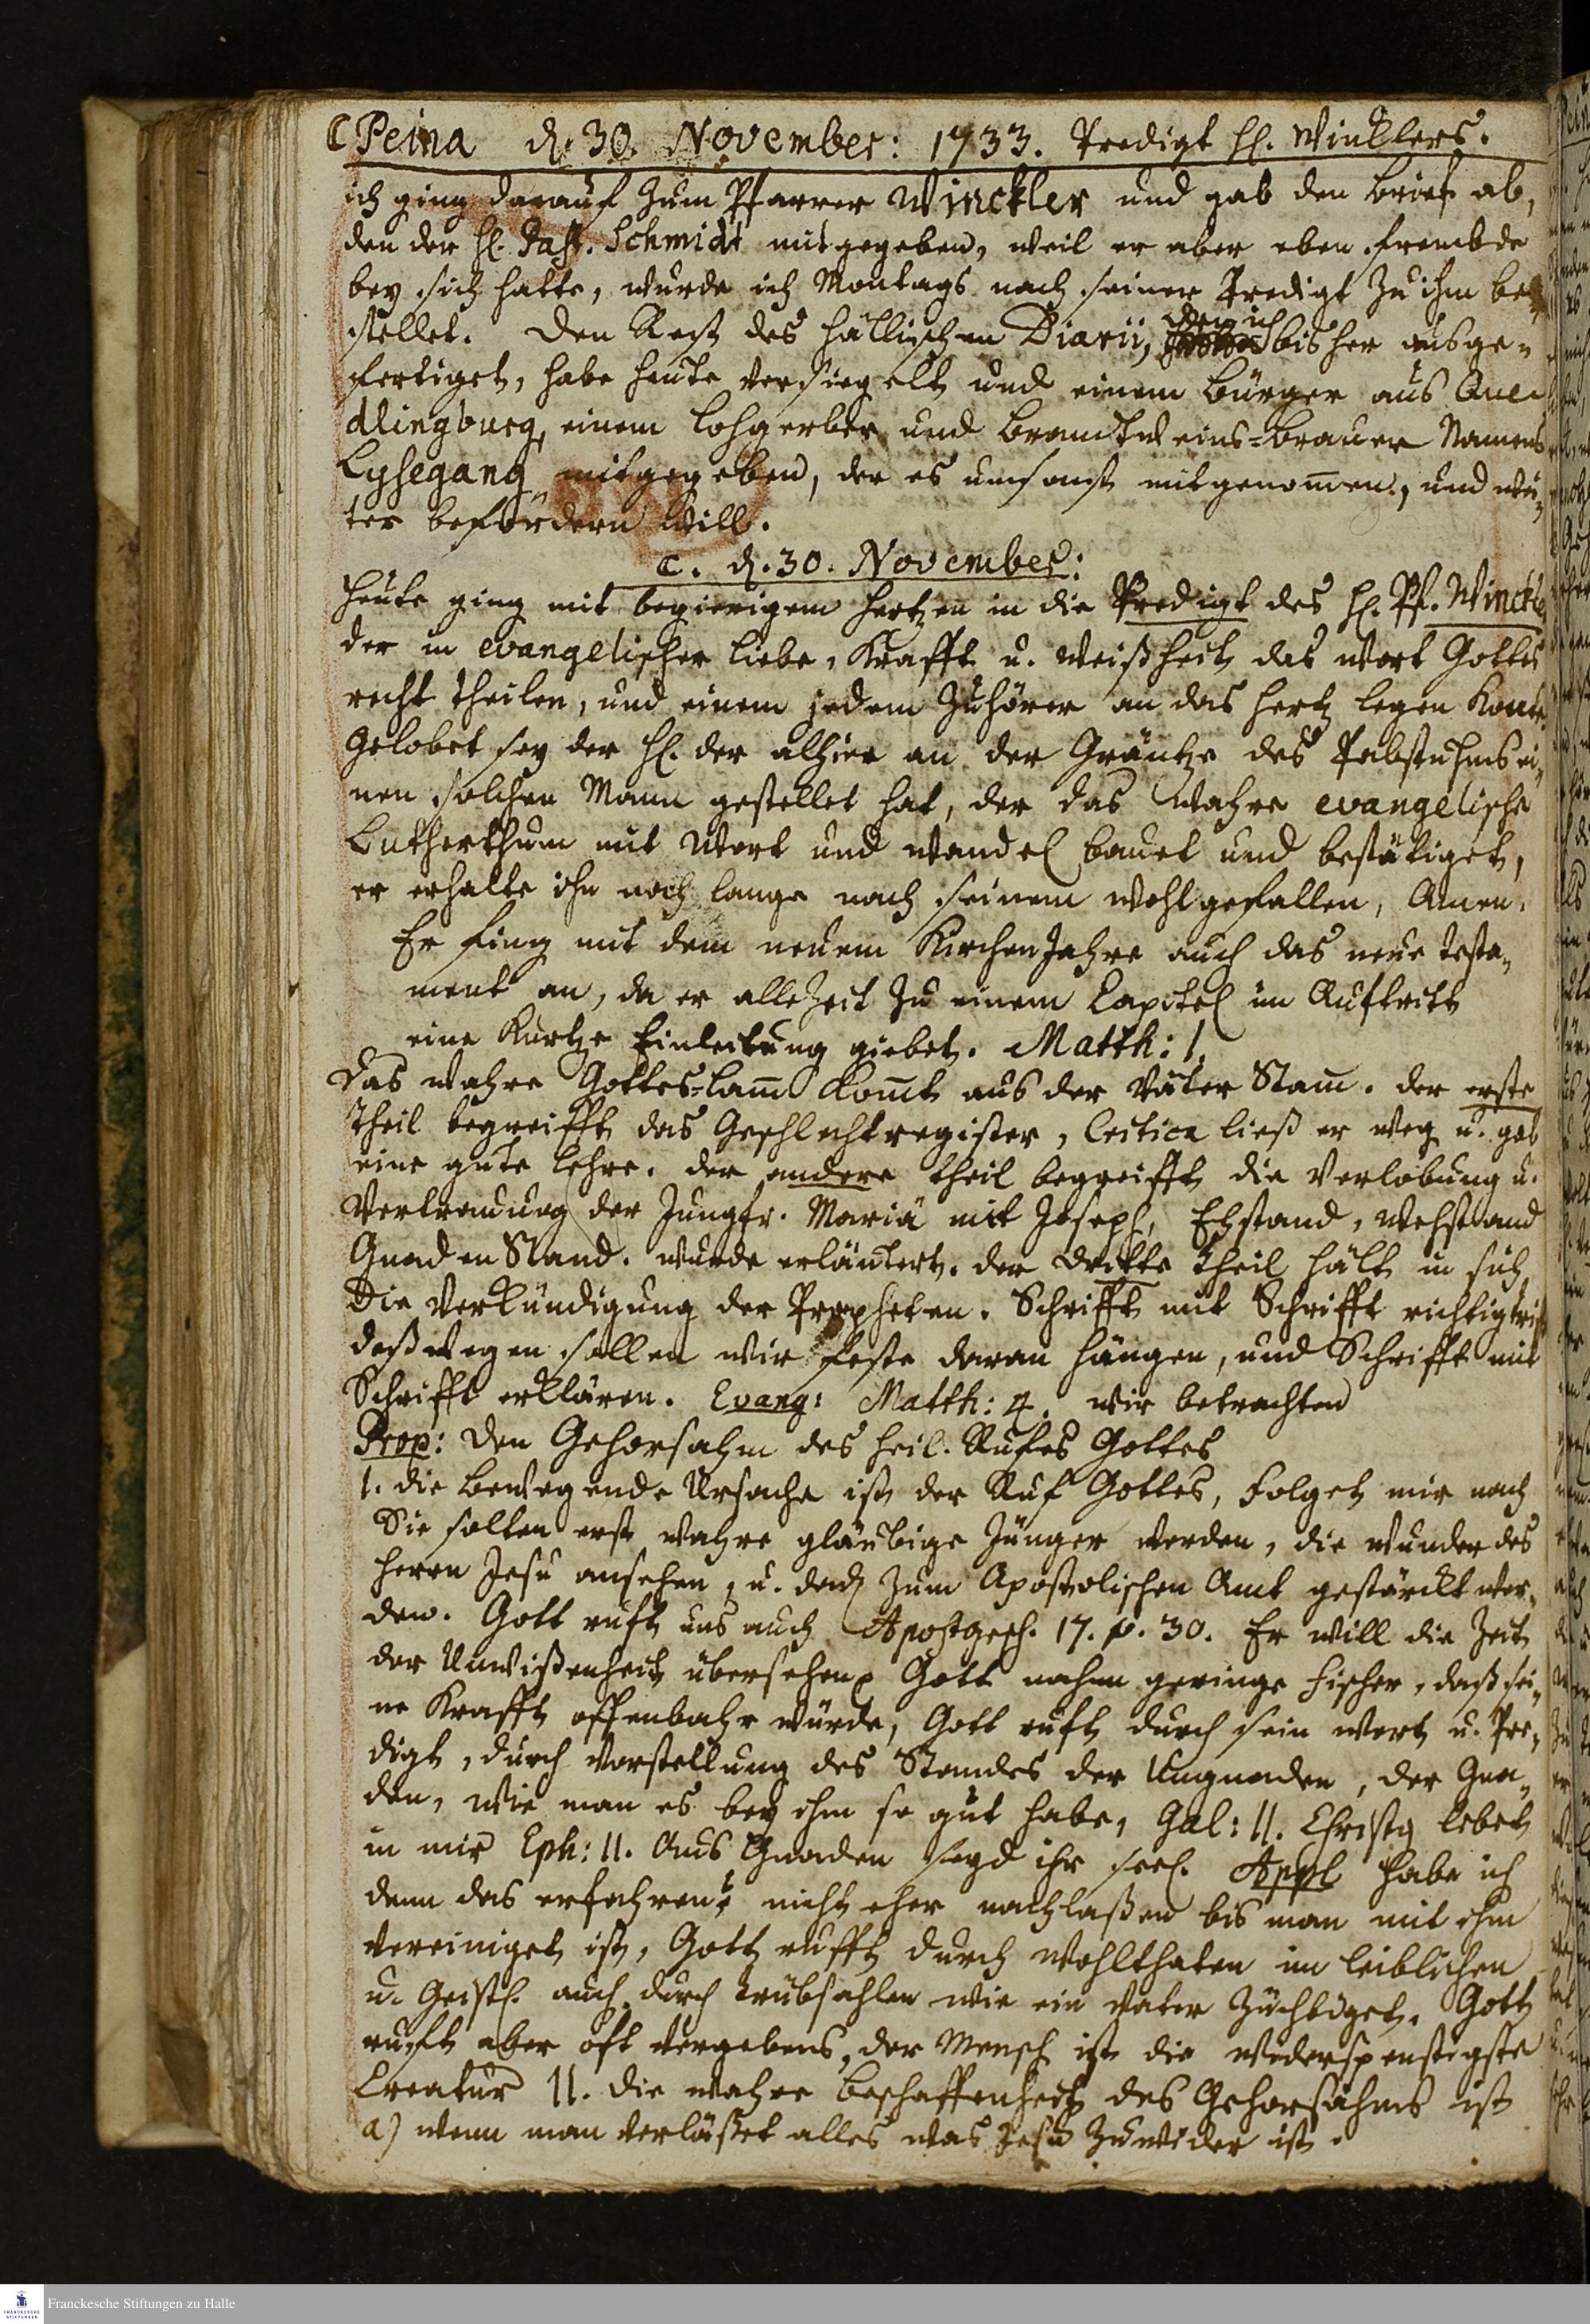 ☾ Peina d. 30. November: 1733. Predigt H. Wincklers.
ich ging darauf zum Pfarrer Winckler und gab den brief ab,
den der H. Past. Schmidt mitgegeben, weil er aber eben frembde
bey sich hatte, wurde ich Montags nach seiner Predigt zu ihm be
stellet. Den Rest des hällischen Diarii, den ich bisher ausge-
fertiget, habe heute versiegelt und einem bürger aus Que
dlingburg, einem lohgerber und brandtweins-brauer Namens
Lysegang mitgegeben, der es umsonst mitgenom̅en, und wei-
ter befördern will.
☾. d. 30. November:
Heute ging mit begierigem hertzen in die Predigt des H. Pf. Winckle
der in evangelischer liebe, Krafft u. weißheit das wort Gottes
recht theilen, und einem jedem Zuhörer an das hertz legen konte
Gelobet sey der H. der alhier an der Gräntze des Pabstuhms ei-
nen solchen Mann gestellet hat, der das wahre evangelische
Lutherthum mit Wort und wandel bauet und bestätiget,
er erhalte ihn noch lange nach seinem wohlgefallen, Amen.
Er fing mit dem neuem KirchenJahre auch das neue testa-
ment an, da er allezeit zu einem Capitel im Auftritt
eine kurtze Einleitung giebet. Matth: 1.
Das wahre Gottes-lam̅ kom̅t aus der Väter Stam̅. der erste
theil begreifft das Geschlechtregister, Critica ließ er weg u. gab
eine gute lehre. der andere theil begreifft die Verlobung u.
Vertrauung der Jungfr. Mariä mit Joseph, Ehstand, wehstand
GnadenStand. wurde erläutert. der dritte theil hält in sich
Die Verkündigung der Propheten. Schrifft mit Schrifft richtig
deßwegen sollen wir feste daran hängen, und Schrifft mit
Schrifft erklären. Evang: Matth: 4. wir betrachten
Prop: Den Gehorsahm des heil. Rufes Gottes
1. die bewegende Ursache ist der Ruf Gottes, Folget mir nach
Sie solten erst wahre gläubige Jünger werden, die wunder des
Herrn Jesu ansehen, u. zum Apostolischen Amt gestärckt wer-
den. Gott ruft uns auch Apostgesch. 17. v. 30. Er will die Zeit
der Unwißenheit übersehen Gott nahm geringe Fischer, daß sei-
ne Krafft offenbahr würde, Gott ruft durch sein wort u. Pre-
digt, durch Vorstellung des Standes der Ungnaden, der Gna-
den, wie man es bey ihm so gut habe, Gal: II. Christus lebet
in mir Eph: II. Aus Gnaden seyd ihr seel. Appl habe ich
denn das erfahren? nicht eher nachlaßen bis man mit ihm
vereiniget ist, Gott rufft durch wohlthaten im leiblichen
u. Geistl. auch durch trübsahlen wie ein vater züchtiget. Gott
ruft aber oft vergebens, der Mensch ist die wiederspenstigste
Creatur II. die wahre beschaffenheit des Gehorsahms ist
a) wenn man verläßet alles was Jesu zuwieder ist.
FRANCKESCHE STIFTUNGEN
Franckesche Stiftungen zu Halle